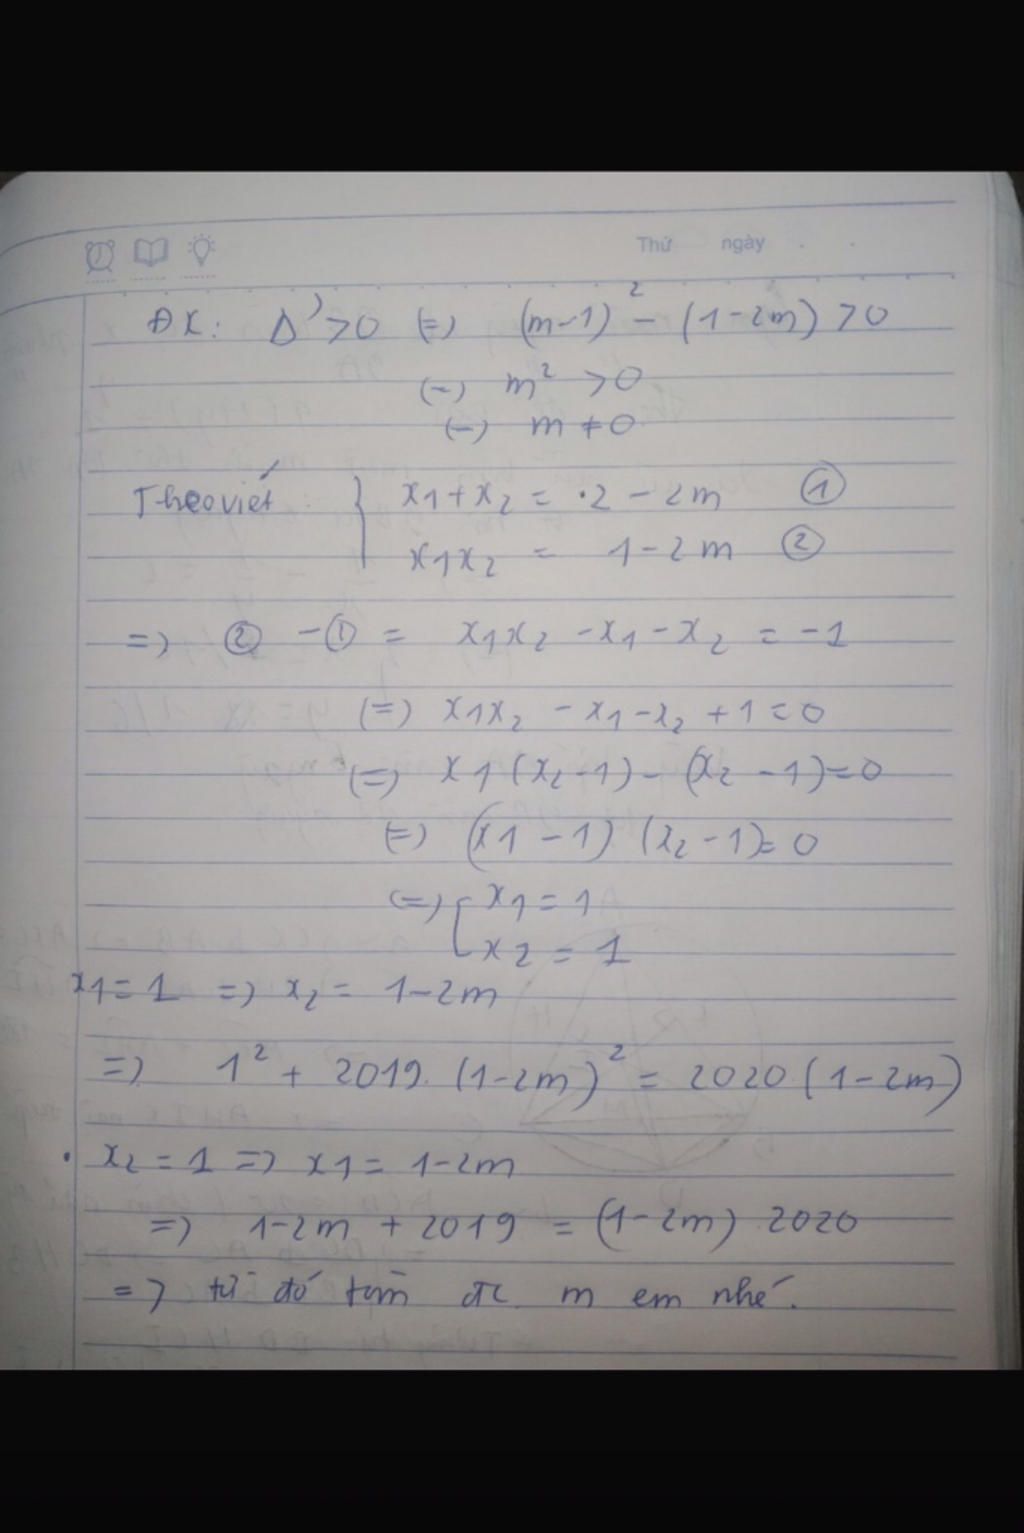 Thứ ngày
ĐK: Δ' > 0 (=) (m-1)² - (1-2m) > 0
(=) m² > 0
(=) m ≠ 0
Theo viét: { x1 + x2 = 2 - 2m ①
x1x2 = 1 - 2m ②
=> ② - ① = x1x2 - x1 - x2 = -1
(=) x1x2 - x1 - x2 + 1 = 0
(=) x1 (x2 - 1) - (x2 - 1) = 0
(=) (x1 - 1) (x2 - 1) = 0
(=) [ x1 = 1
x2 = 1
x1 = 1 => x2 = 1 - 2m
=> 1² + 2019. (1-2m)² = 2020 (1-2m)
. x2 = 1 => x1 = 1-2m
=> 1-2m + 2019 = (1-2m) 2020
=> từ đó tìm đc m em nhé.